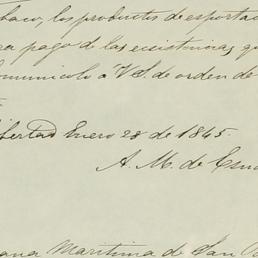 baco, los productos de esportac
ra pago de las ecsistencias, qu
omunicolo a V.S. de orden de
ibertad Enero 28 de 1845.
A. M. de Esna
ana Maritima de San B